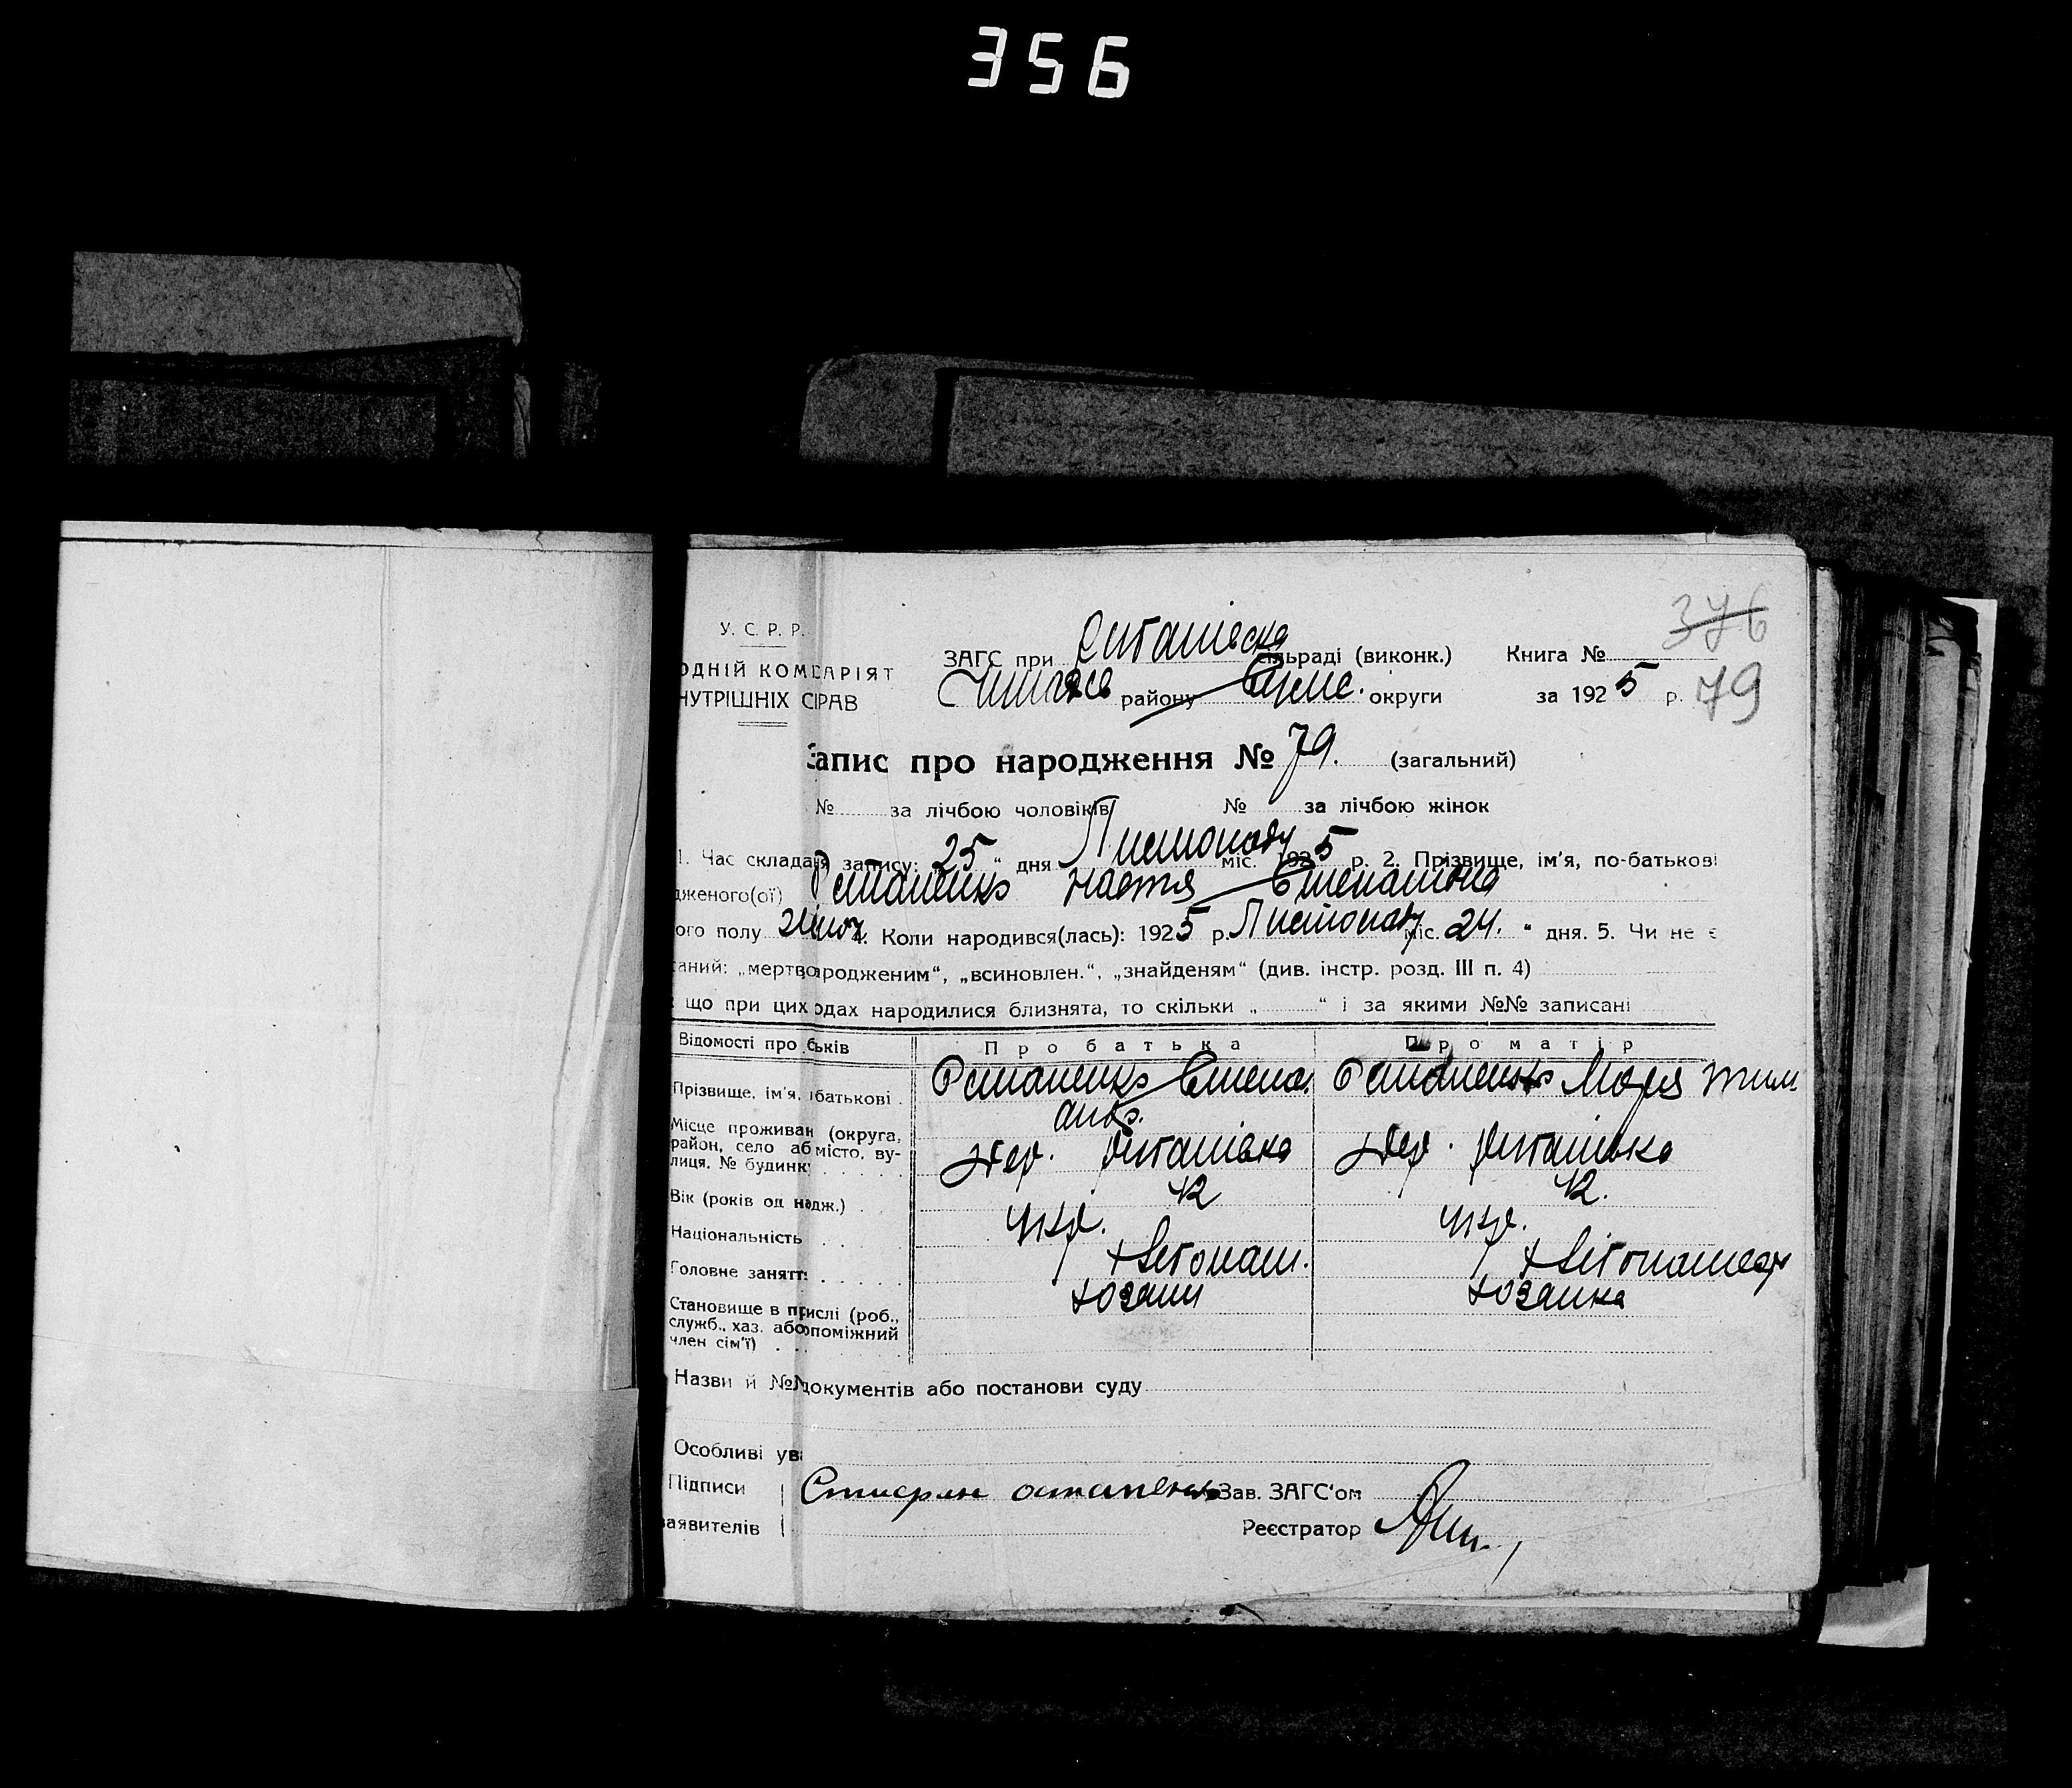 356
376
У. С. Р. Р.
ОДНІЙ КОМІСАРІЯТ
НУТРІШНІХ СПРАВ
ЗАГС при сільраді (виконк.) Книга №
району Сумс. округи за 1925 р. 79
Запис про народження № 79. (загальний)
№ за лічбою чоловіків № за лічбою жінок
1. Час складання запису: 25 " дня Листопаду міс. 1925 р. 2. Прізвище, ім'я, по-батькові
дженого(ої) Остапенко Настя
ого полу жіноч. Коли народився(лась): 1925 р. Листопаду міс. 24. " дня. 5. Чи не є
саний: „мертвородженим“, „всиновлен.“, „знайденям“ (див. інстр. розд. III п. 4)
що при цих родах народилися близнята, то скільки „ “ і за якими №№ записані
Відомості про батьків Про батька Про матір
Прізвище, ім'я, по-батькові . Остапенко Степан Остапенко Марія Тим
Місце проживан (округа,
район, село або місто, ву-
лиця, № будинк
Вік (років од надж.) . 42 42.
Національність укр. укр.
Головне заняття Хлібопаш.
Становище в прислі (роб.,
служб., хаз. або допоміжний
член сім'ї) хозяин хозяйка
Назви й №№ документів або постанови суду
Особливі ува
Підписи остапенко Зав. ЗАГС'ом
заявителів Реєстратор